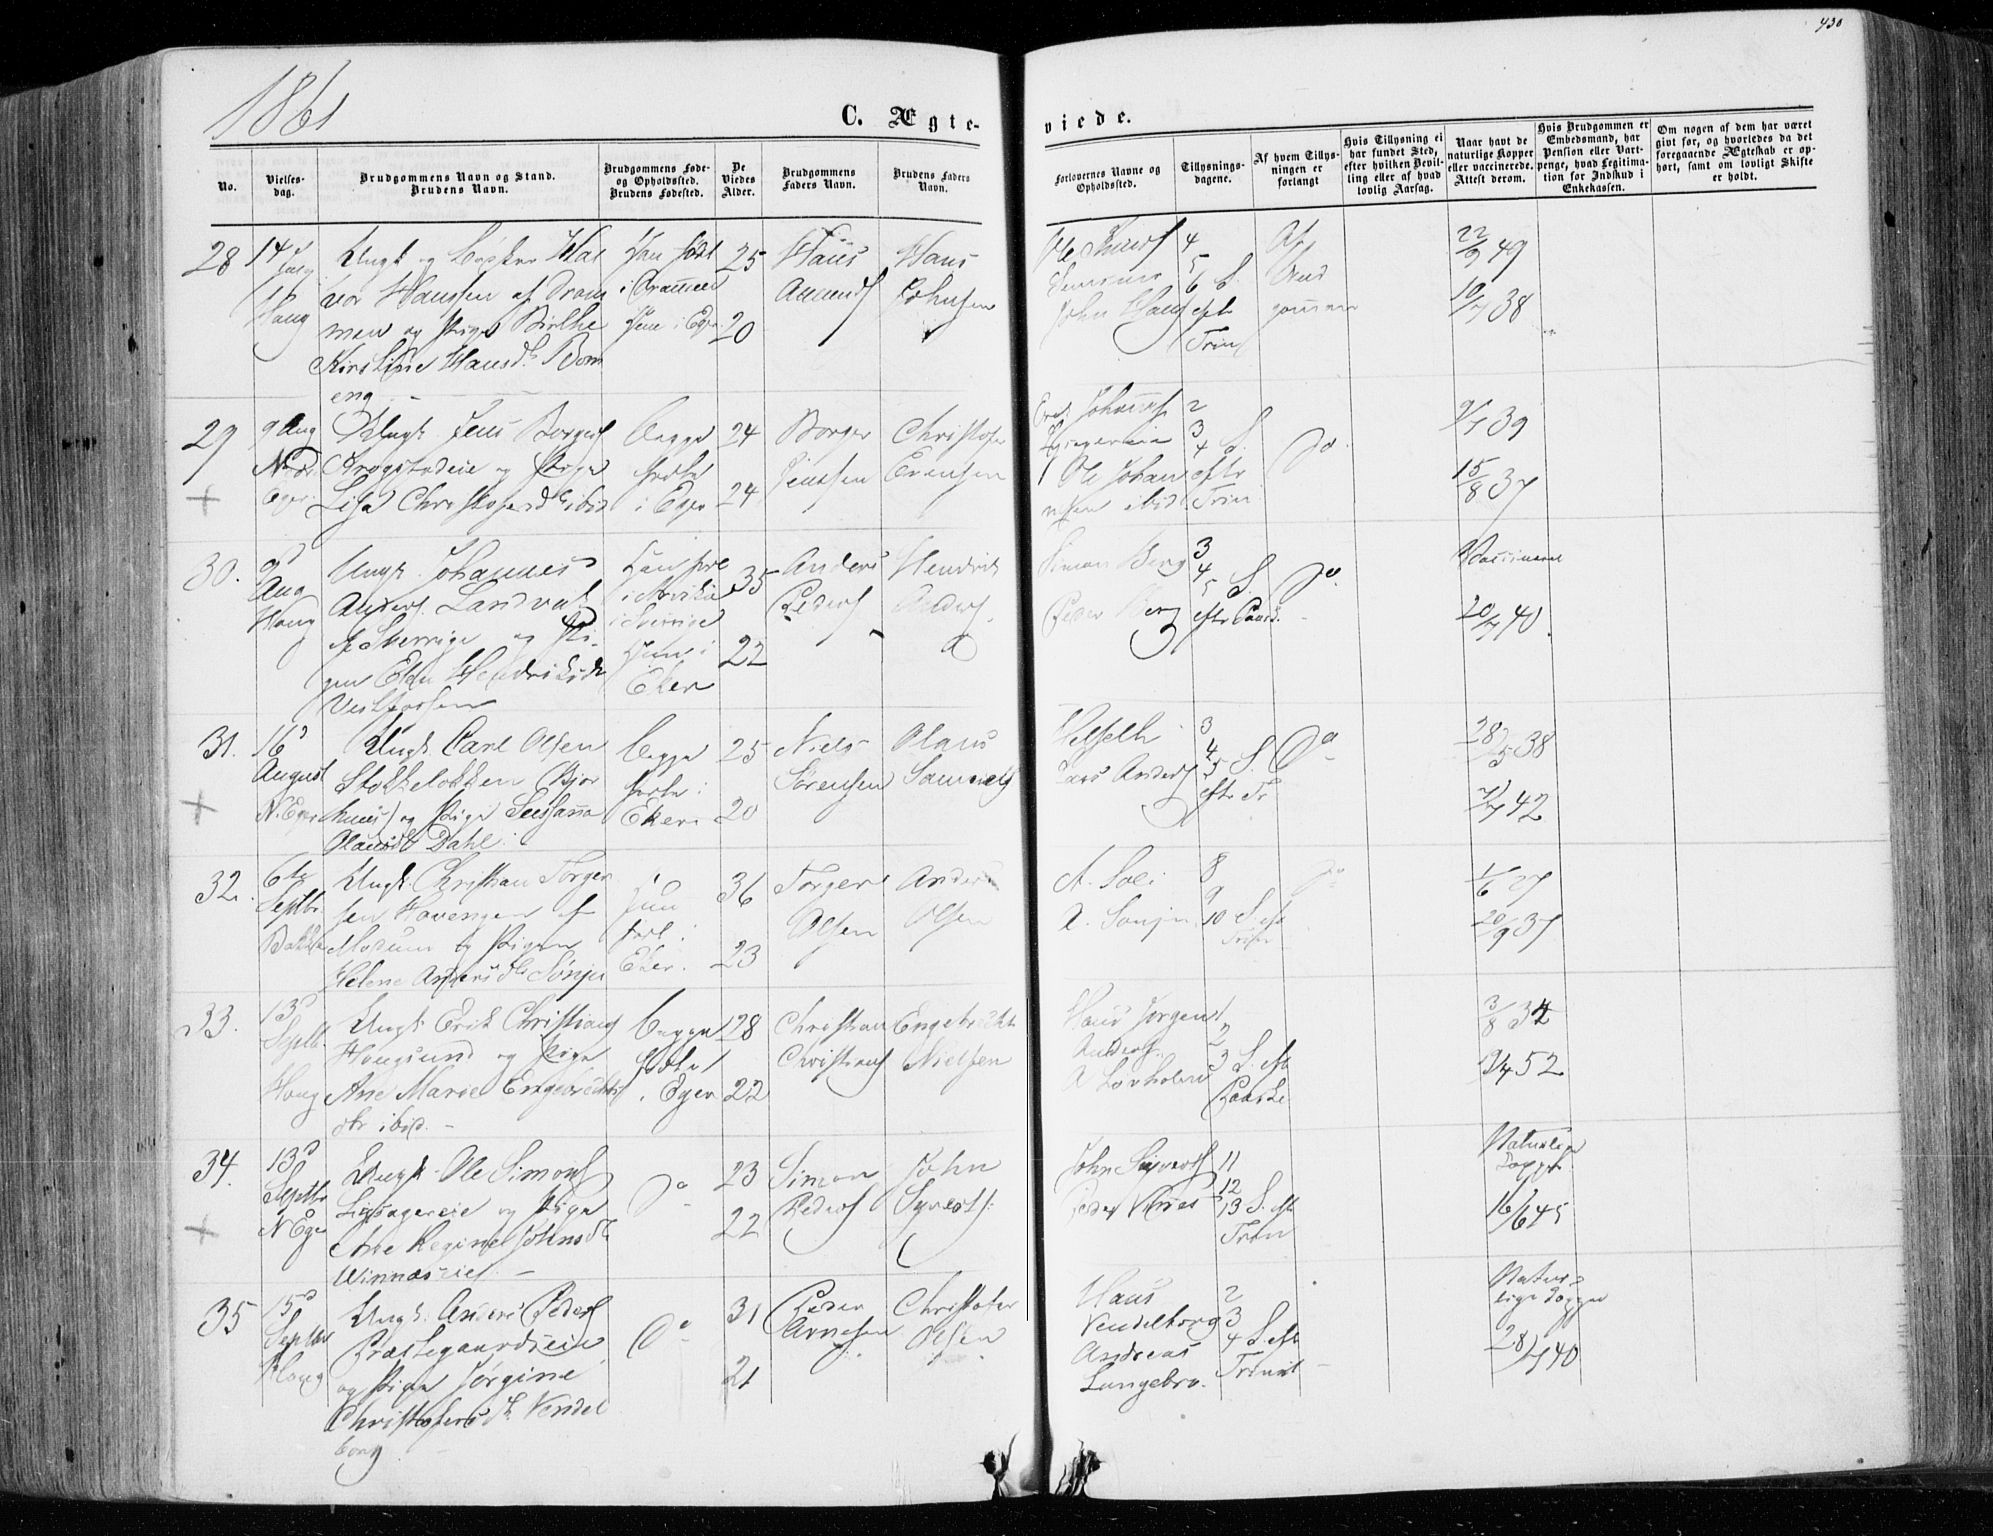 430
1861
C. Ægte-
viede.
No.
Vielses-
dag.
Brudgommens Navn og Stand.
Brudens Navn.
Brudgommens Føde-
og Opholdssted.
Brudens Fødested.
De
Viedes
Alder.
Brudgommens
Faders Navn.
Brudens Faders
Navn.
Forlovernes Navne og
Opholdssted.
Tillysnings-
dagene.
Af hvem Tillys-
ningen er
forlangt
Hvis Tillysning ei
har fundet Sted,
efter hvilken Bevil-
ling eller af hvad
lovlig Aarsag.
Naar havt de
naturlige Kopper
eller vaccinerede.
Attest derom.
Hvis Brudgommen er
Embedsmand, har
Pension eller Vart-
penge, hvad Legitima-
tion for Indskud i
Enkekassen.
Om nogen af dem har været
givt før, og hvorledes da det
foregaaende Ægteskab er op-
hørt, samt om lovligt Skifte
er holdt.
28
14 July
Houg
Ungk og Bødker Hal
vor Hanssen af Dram
men og Pige Birthe
Kirstine Hansd. Bom
eng
Han født
i Drammen
Hun i Eger
25
20
Hans
Hans
Johnsen
4
5
6 S.
eft
Trin
Af
Brud
gommen
22/9 49
10/7 38
29
9 Aug
N.
Eger
+
Ungk. Jens Borgers
Krogstadeie og Pige
Lisa Christofersd. ibid
begge
fødte
i Eger
24
24
Borger
Jenssen
Christofer
Evensen
Ole Johan
nsen ibid
2
3
4 S.
eftr
Trin
Do.
9/7 39
15/8 37
30.
9
Aug
Houg
Ungk. Johannes
Anders. Landval
af Sverrige og Pi-
gen Elen Hendriksdr
Vestfossen
Han født
i Arvika
i Sverrige
Hun i
Eker
35
22
Anders
Peders
Hendrik
Anders.
Simon Berg
Peder Berg
3
4
5 S.
eftr Paask.
Do.
Vaccineret
20/7 40.
31.
16
August
N. Eger
+
Ungk. Carl Olsen
Stokkeløkken
og Pige Susanna
Olausd. Dahl.
begge
fødte i
Eker
25
20
Niels
Sørensen
Olaus
Samuels
Helseth
Lars Anders
3
4
5 S.
eftr Tr
Do
28/5 38
7/7 42
32.
6te
Septbr.
Bakke
Ungk. Christian Torger
sen Hovengen af
Modum og Pigen
Helene Andersdtr Sønju
Hun
født i
Eker.
36
23
Torger
Olsen
Anders
Olsen
A. Soli
A. Sønju
8
9
10 S. eft
Trin
Do
1/6 27
20/9 37
33.
13
Septb.
Houg
Ungk. Erik Christians
Hougsund og Pige
Ane Marie Engebrechts
dtr ibid. –
begge
fødte
i Eger
28
22
Christian
Christians
Engebrecht
Nielsen
Hans Jørgen
Anders.
A. Løvholen
1
2
3 S. eft
Paaske
3/8 34
52
34.
13
Septbr
N Eger
+
Ungk. Ole Simons
og Pige
Ane Regine Johnsdt
Winnæseie. –
Do
23
22
Simon
Peders
John
Syverts.
John Syverts
Peder
11
12
13 S. eft
Trin
Naturlige
Kopper
16/6 45
35
15
Septbr
Houg
Ungk. Anders Peders
Præstegaardseie
og Pige Jørgine
Christofersdt. Vendel
borg
Do
31
21
Peder
Arnesen
Christofer
Olsen
Hans
Vendelborg
Andreas
Langebro.
2
3
4 S. eft
Trinit
Natur-
lige Kopper
28/7 40